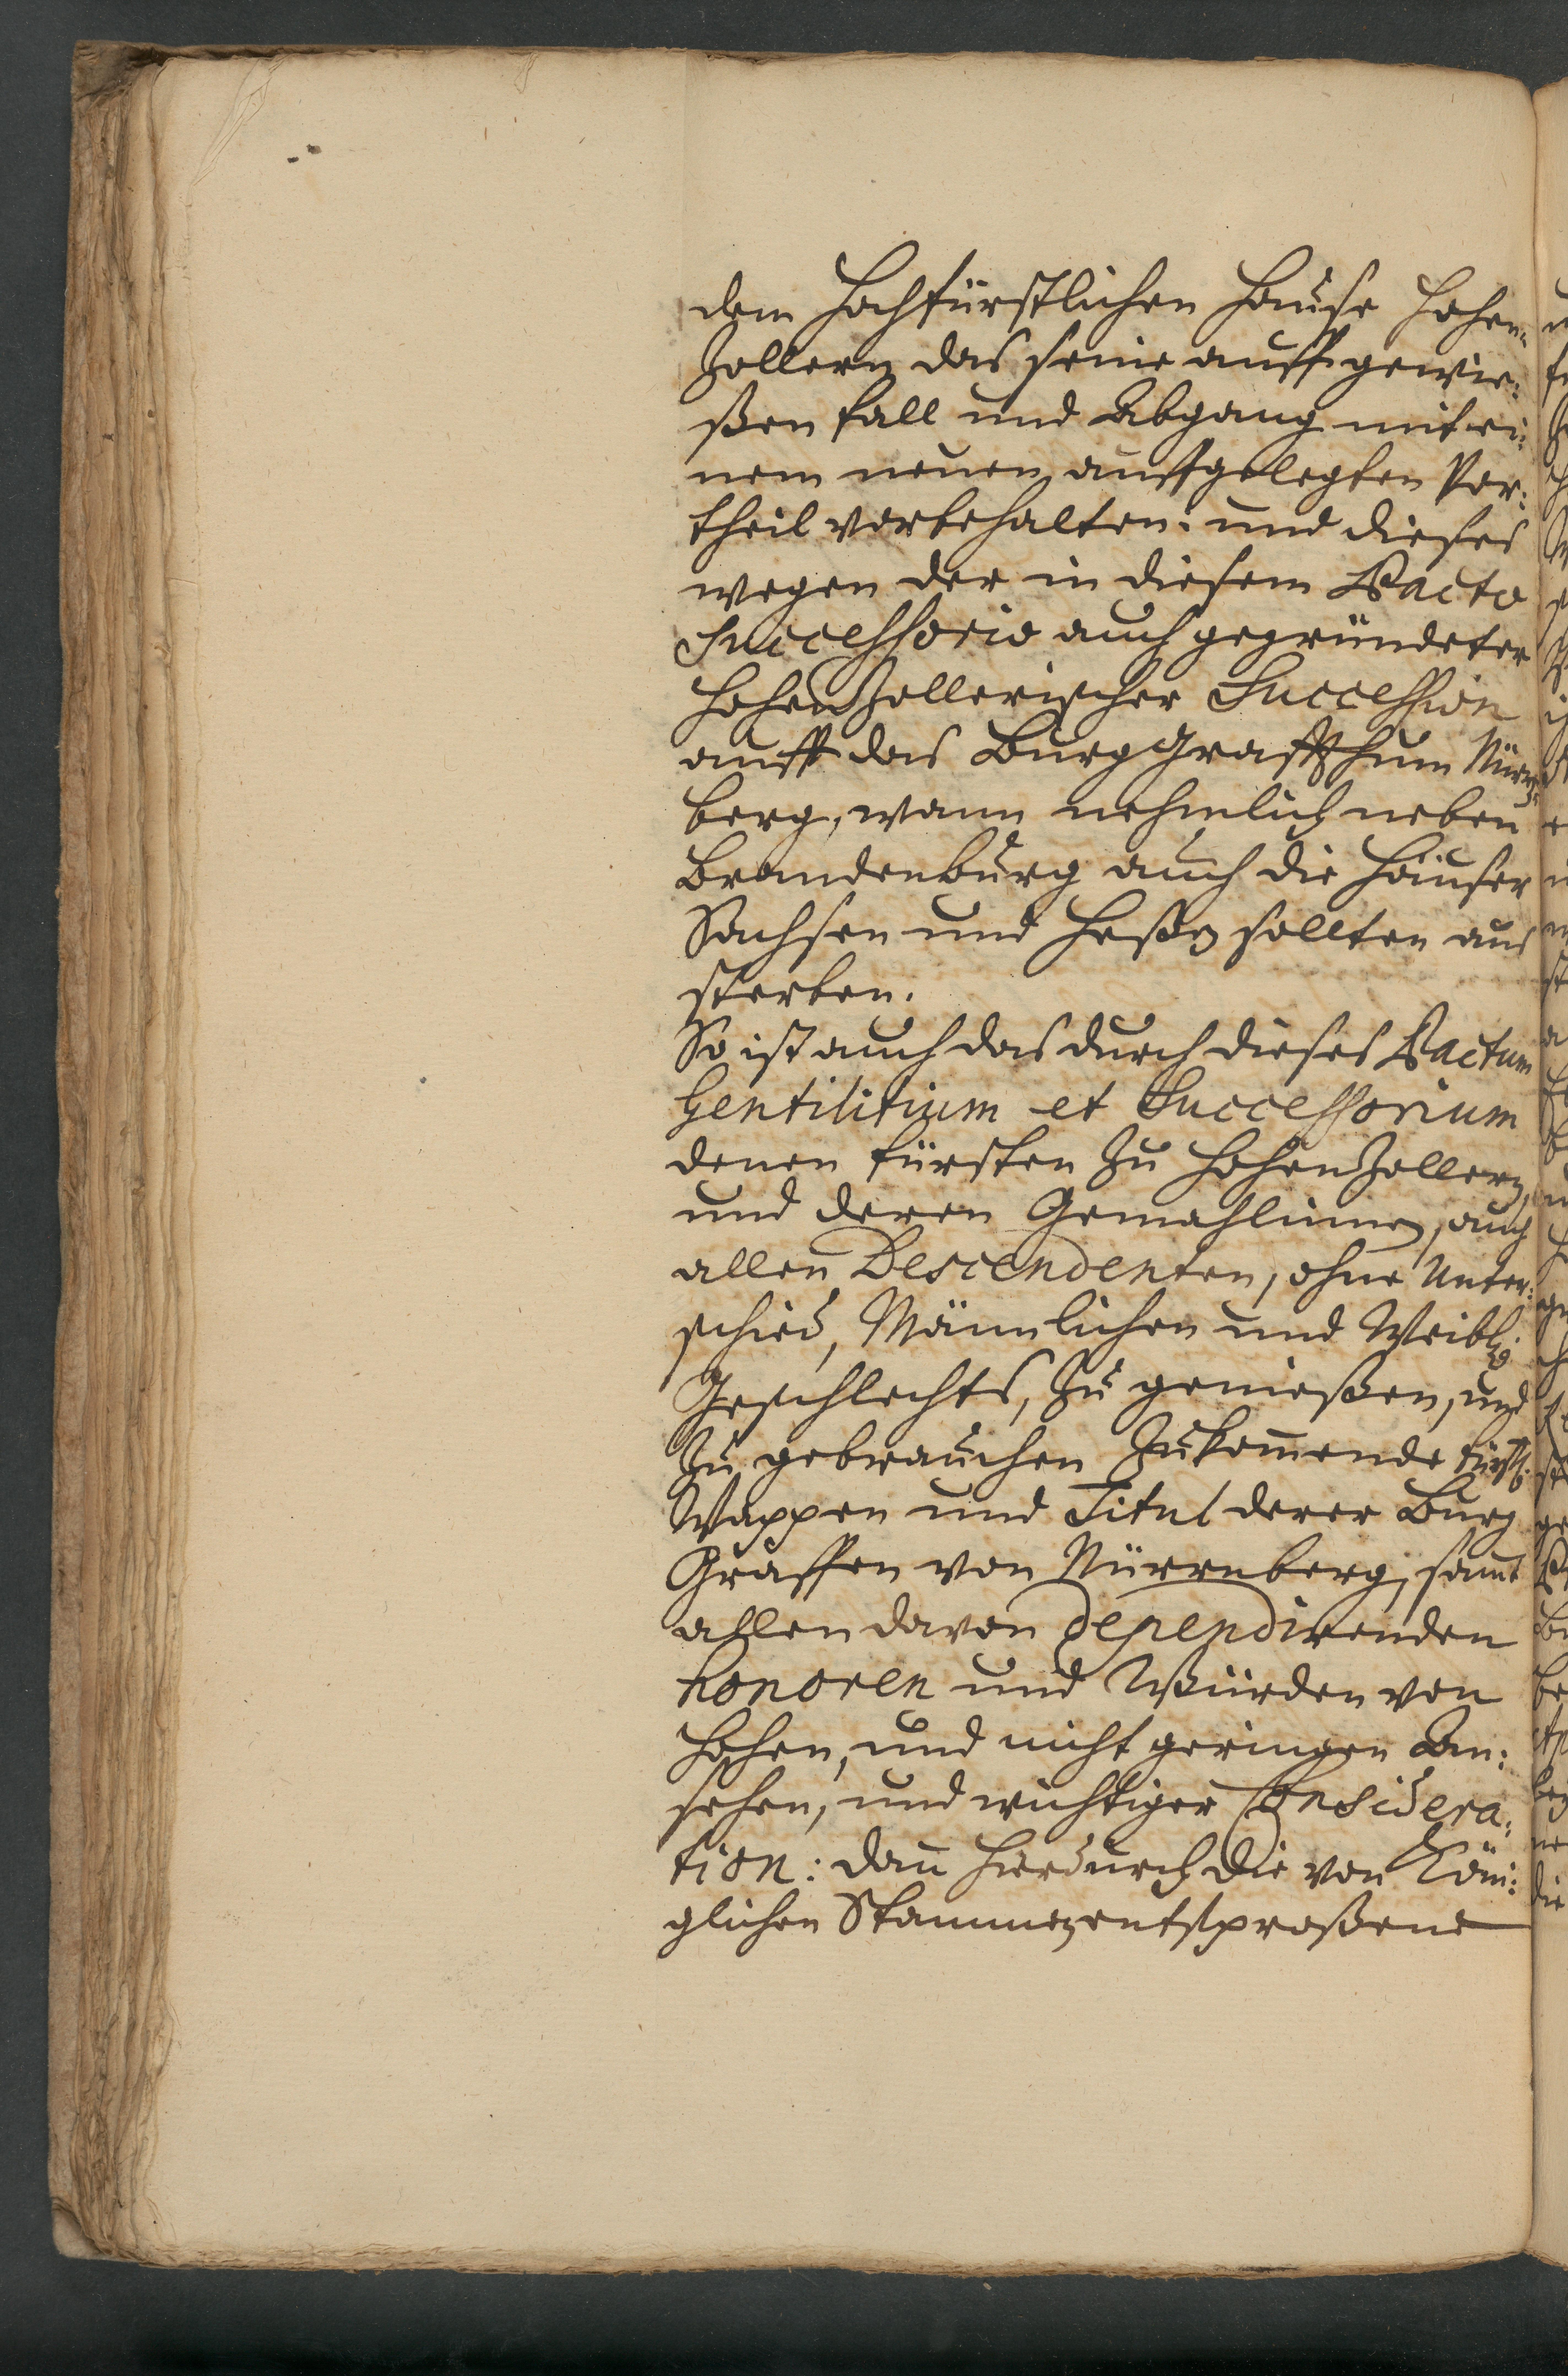 dem Hochfürstlichen Hause Hohen-
Zollern das seine auff gewie:
ßen fall und Abgang mit ei:
nem neuen auffgelegten Vor:
theil vorbehalten: und dieses
wegen der in diesem Pacto
Successorio auch gegründeter
HohenZollerischer Succession
auff das Burg Graffthum Nürn:
berg, wann nehmlich neben
Brandenburg auch die Häuser
Sachsen und Heßen sollten aus
sterben.
So ist auch das durch dieses Pactum
Gentilitium et Successorium
denen fürsten zu HohenZollern,
und deren Gemahlinnen, auch
allen Descendenten, ohne Unter:
schied, Männlichen und Weibl:
Geschlechts, zu genießen, und
zu gebrauchen Zukom̄ende fürstl:
Wappen und Titul derer Burg
Graffen von Nürrnberg, samt
allen davon dependirenden
honoren und Würden von
hohen, und nicht geringen An:
sehen, und wichtiger Considera:
tion: dan̄ hierdurch die von Köni:
glichen Stammen entsproßene